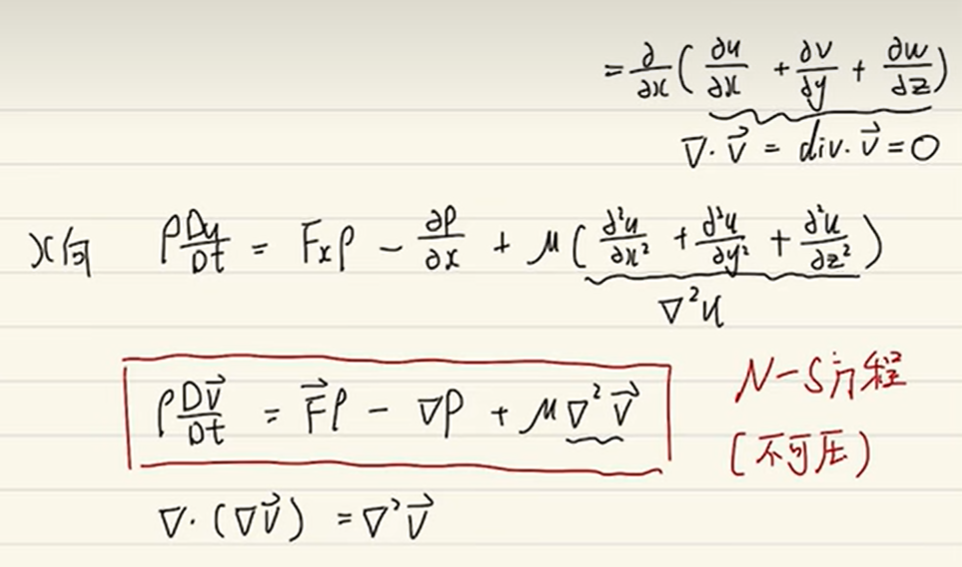 = ∂/∂x ( ∂u/∂x + ∂v/∂y + ∂w/∂z )
∇·v⃗ = div·v⃗ = 0
x向 ρ Du/Dt = Fₓρ − ∂p/∂x + μ ( ∂²u/∂x² + ∂²u/∂y² + ∂²u/∂z² )
∇²u
ρ Dv⃗/Dt = F⃗ρ − ∇p + μ∇²v⃗
N-S方程
(不可压)
∇·(∇v⃗) = ∇²v⃗